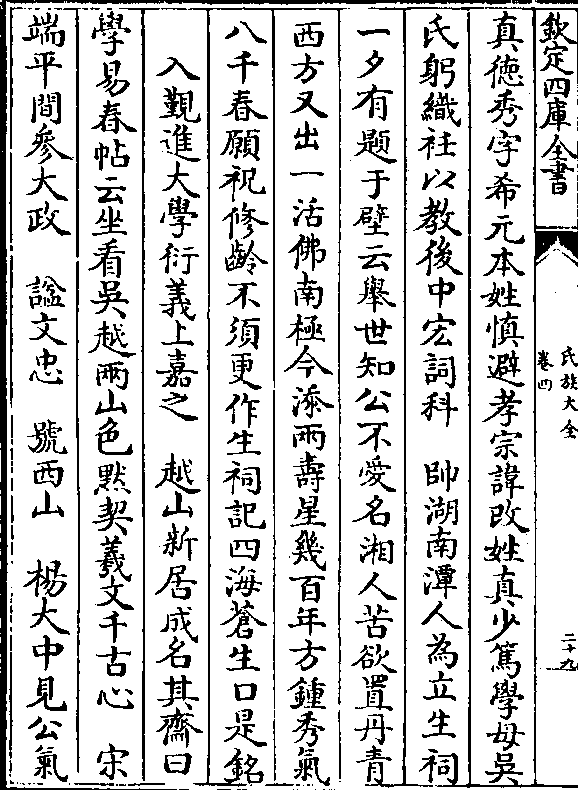 欽定四庫全書
氏族大全
卷四
二十九
真徳秀字希元本姓慎避孝宗諱改姓真少篤學母吳
氏躬織袵以教後中宏詞科 帥湖南潭人為立生祠
一夕有题于壁云舉世知公不愛名湘人苦欲置丹青
西方又出一活佛南極今添兩壽星幾百年方鍾秀氣
八千春願祝修齡不須更作生祠記四海蒼生口是銘
入覲進大學衍義上嘉之 越山新居成名其齋曰
學易春帖云坐看吳越兩山色黙契羲文千古心 宋
端平間參大政 諡文忠 號西山 楊大中見公氣